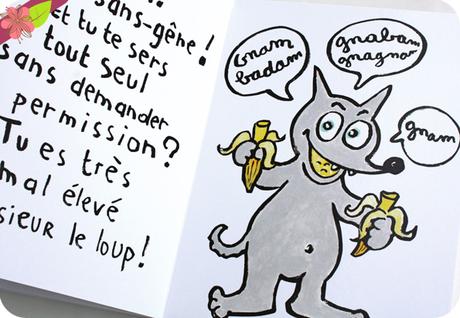 sans-gêne !
Et tu te sers
tout seul
sans demander
permission ?
Tu es très
mal élevé
sieur le loup !
Gnam
badam
gnabam
gnam